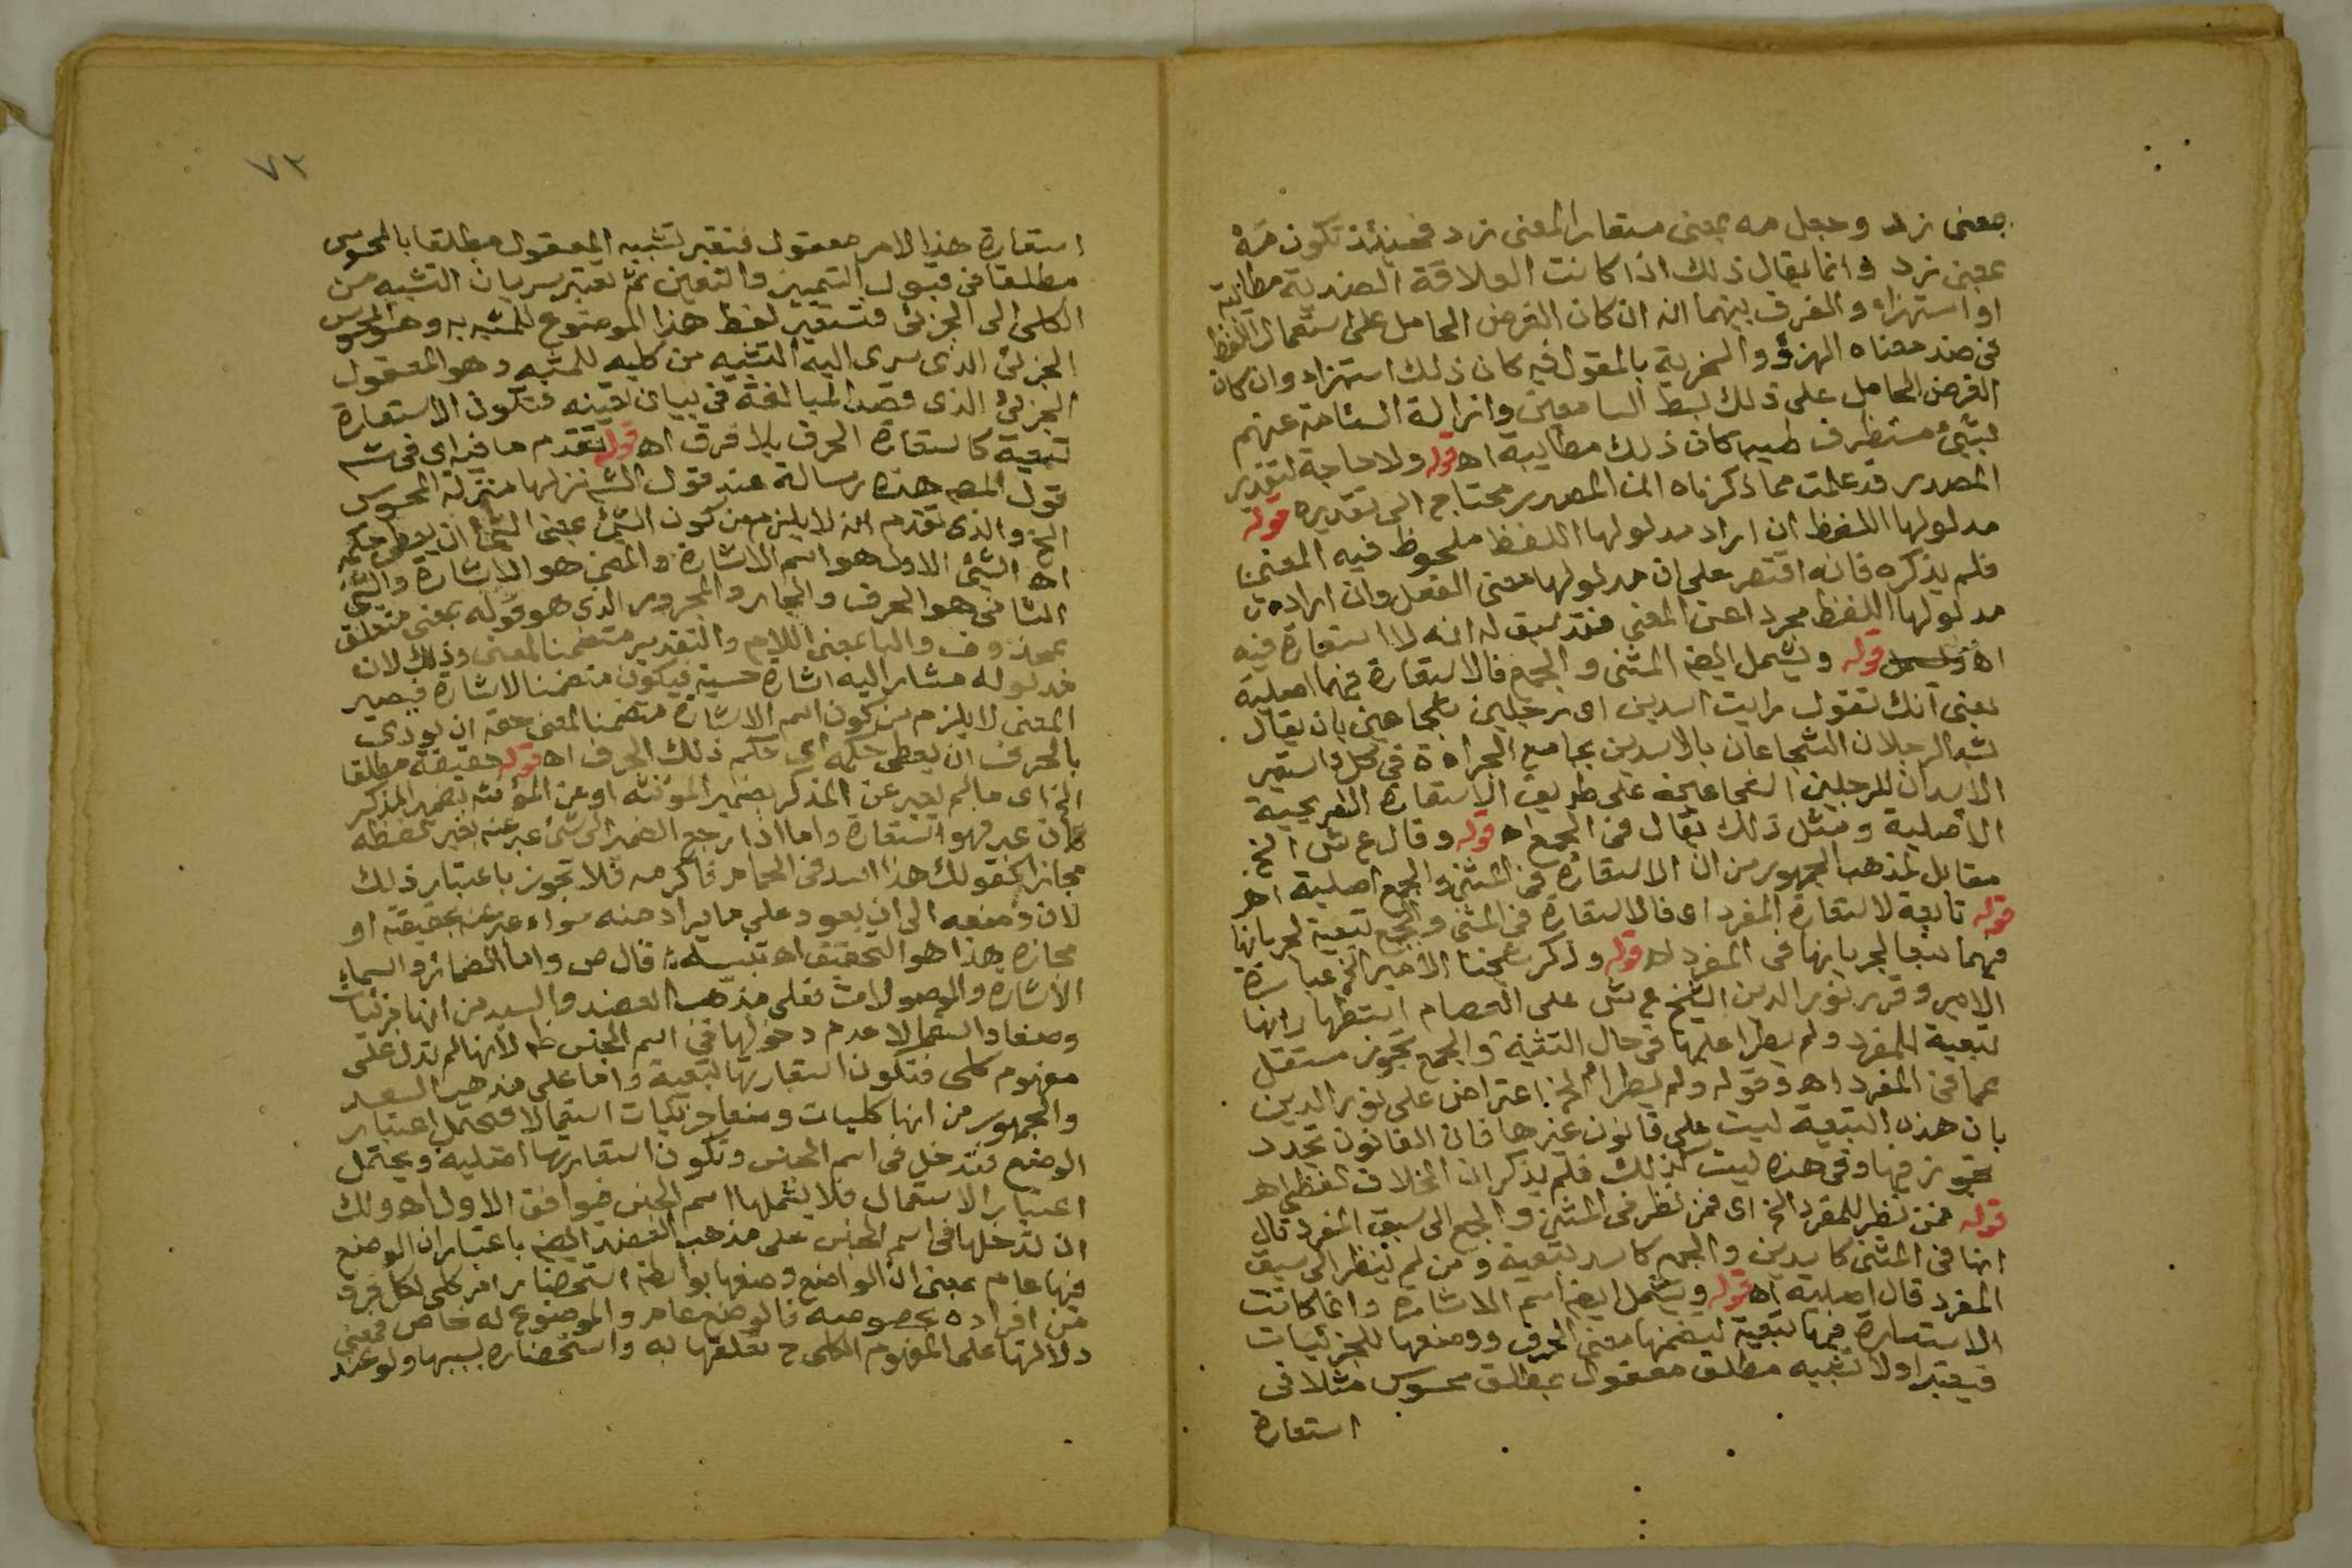 بمعنى زد وجعل مه بمعنى مستعارا لمعنى زد فحينئذ تكون مه
بمعنى زد وانما يقال ذلك اذا كانت العلاقة الضدية مطايبة
او استهزاء والفرق بينهما انه ان كان الغرض الحامل على استعمال اللفظ
فى ضد معناه الهزؤ والسخرية بالمقول فيه كان ذلك استهزاء وان كان
الغرض الحامل على ذلك بسط السامعين وازالة السٔامة عنهم
بشىء مستظرف كان ذلك مطايبة اه قوله ولا حاجة لتقدير
المصدر قد علمت مما ذكرناه ان المصدر محتاج الى تقديره قوله
مدلولها اللفظ ان اراد مدلولها اللفظ ملحوظ فيه المعنى
فلم يذكره فانه اقتصر على ان مدلولها معنى الفعل وان اراد ان
مدلولها اللفظ مجردا عن المعنى فقد سبق له انه لا استعارة فيه
اه قوله ويشمل ايضا المثنى والجمع فالاستعارة فيهما اصلية
يعنى انك تقول رايت اسدين اى رجلين شجاعين بان يقال
شبه الرجلان الشجاعان بالاسدين بجامع الجراءة فى كل واستعير
الاسدان للرجلين الشجاعين على طريق الاستعارة التصريحية
الاصلية ومثل ذلك يقال فى الجمع اه قوله وقال ع ش الخ
مقابل لمذهب الجمهور من ان الاستعارة فى المثنى والجمع اصلية اه
قوله تابعة لاستعارة المفرد اى فالاستعارة فى المثنى والجمع تبعية لجريانها
فيهما تبعا لجريانها فى المفرد اه قوله وذكر شيخنا الامير الخ عبارة
الامير وقرر نور الدين الشيخ ع ش على العصام استظهارانها
تبعية للمفرد ولم يطرا عليها فى حال التثنية والجمع تجوز مستقل
عما فى المفرد اه وقوله ولم يطرا الخ اعتراض على نور الدين
بان هذه التبعية ليست على قانون غيرها فان القانون تجدد
تجوز فيها وفى هذه ليست كذلك فلم يذكر ان الخلاف لفظى اه
قوله فمن نظر للمفرد الخ اى فمن نظر فى المثنى والجمع الى سبق المفرد قال
انها فى المثنى كاسدين والجمع كاسد تبعية ومن لم ينظر الى سبق
المفرد قال اصلية اه قوله ويشمل ايضا اسم الاشارة وانما كانت
الاستعارة فيها تبعية لتضمنها معنى الحرف ووضعها للجزئيات
فيعتبر اولا تشبيه مطلق معقول بمطلق محسوس مثلا فى
استعارة
٧٣
استعارة هذا الامر معقول فنعتبر تشبيه المعقول مطلقا بالمحسوس
مطلقا فى قبول التمييز والتعين ثم نعتبر سريان التشبيه من
الكلى الى الجزئى فتستعير لفظ هذا الموضوع للمشبه به وهو المحسوس
الجزئى الذى سرى اليه التشبيه من كليه للمشبه وهو المعقول
الجزئى الذى قصد المبالغة فى بيان تعينه فتكون الاستعارة
تبعية كاستعارة الحرف بلا فرق اه قوله تقدم ما فيه اى فى
قول المص هذه رسالة عند قول الش نزلها منزلة المحسوس
الخ والذى تقدم انه لا يلزم من كون الشئ بمعنى الشئ ان يعطى حكمه
اه الشئ الاول هو اسم الاشارة والمعنى هو الاشارة والشئ
الثانى هو الحرف والجار والمجرور الذى هو قوله بمعنى متعلق
بمحذوف والبا بمعنى اللام والتقدير متضمنا لمعنى وذلك لان
مدلوله مشار اليه اشارة حسية فيكون متضمنا لاشارة فيصير
المعنى لا يلزم من كون اسم الاشارة متضمنا لمعنى حقه ان يودى
بالحرف ان يعطى حكمه اى حكم ذلك الحرف اه قوله حقيقة مطلقا
الخ اى ما لم يعبر عن المذكر بضمير المونثه او عن المؤنثه بضمير المذكر
فان عبر فهو استعارة واما اذا رجع الضمير الى شئ عبر عنه بغير لفظه
مجازا كقولك هذا اسد فى الحمام فاكرمه فلا تجوز باعتبار ذلك
لان وضعه الى ان يعود على ما يراد منه سواء عبر عنه بحقيقته او
مجازه هذا هو التحقيق اه تنبيه قال ص واما الضمائر واسماء
الاشاره والموصولات فعلى مذهب العضد والسيد من انها جزئيات
وضعا واستعمالا عدم دخولها فى اسم الجنس ظ لانها لم تدل على
مفهوم كلى فتكون استعارتها تبعية واما على مذهب السعد
والجمهور من انها كليات وضعا جزئيات استعمالا فيحتمل اعتبار
الوضع فتدخل فى اسم الجنس وتكون استعارتها اصلية ويحتمل
اعتبار الاستعمال فلا يشملها اسم الجنس فيوافق الاول اه ولك
ان تدخلها فى اسم الجنس على مذهب العضد ايضا باعتبار ان الوضع
فيها عام بمعنى ان الواضع وضعها بواسطة استحضار امر كلى لكل فرد
من افراده بخصوصه فالوضع عام والموضوع له خاص فمعنى
دلالتها على المفهوم الكلى ح تعلقها به واستحضاره بسببها ولو عند